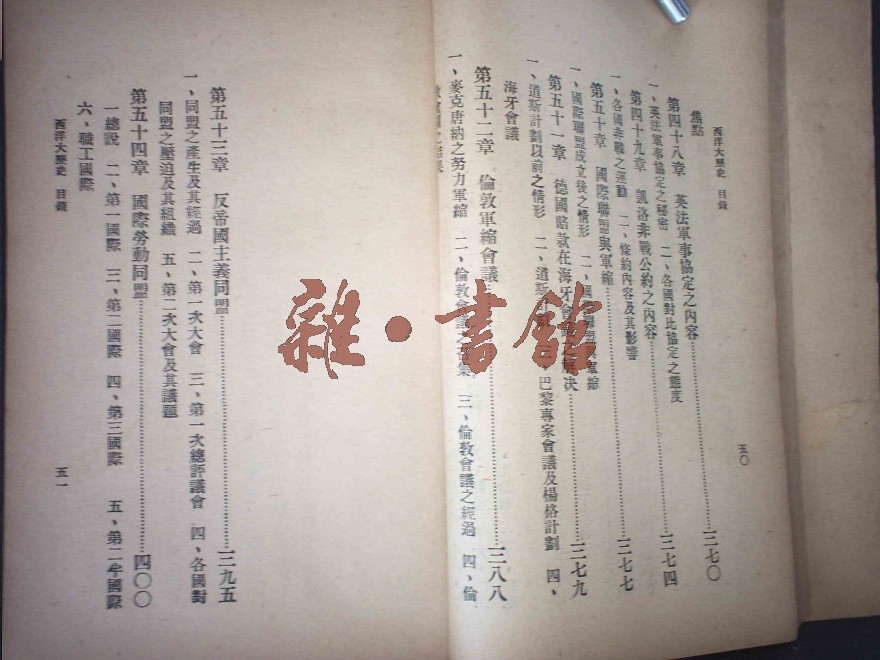 西洋大歷史 目錄 五〇
焦點
第四十八章 英法軍事協定之內容……三七〇
一、英法軍事協定之秘密 二、各國對比協定之態度
第四十九章 凱洛非戰公約之內容……三七四
一、各國非戰之運動 二、條約內容及其影響
第五十章 國際聯盟與軍縮……三七七
一、國際聯盟成立後之情形 二、國際聯盟與軍縮
第五十一章 德國賠款在海牙會議之解決……三七九
一、道斯計劃以前之情形 二、道斯計劃 三、巴黎專家會議及楊格計劃 四、
海牙會議
第五十二章 倫敦軍縮會議……三八八
一、麥克唐納之努力軍縮 二、倫敦會議之召集 三、倫敦會議之經過 四、倫
第五十三章 反帝國主義同盟……三九五
一、同盟之產生及其經過 二、第一次大會 三、第一次總評議會 四、各國對
同盟之壓迫及其組織 五、第二次大會及其議題
第五十四章 國際勞動同盟……四〇〇
一總說 二、第一國際 三、第二國際 四、第三國際 五、第二半國際
六、職工國際
西洋大歷史 目錄 五一
雜·書館